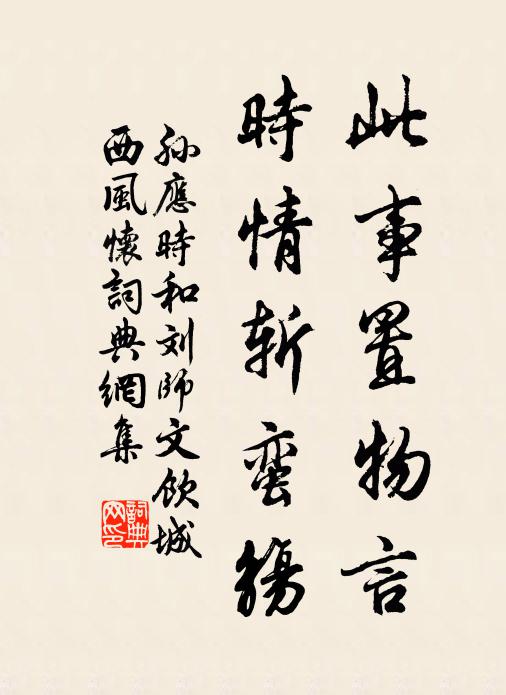 此事置物言
時情斩蛮觞
孙應時和刘師文飲城
西風懷詞典網集
詞典
网印